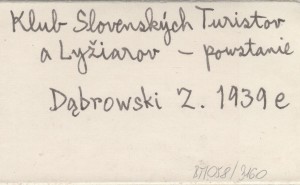 Klub Slovenských Turistov
a Lyžiarov – powstanie
Dąbrowski Z. 1939 e
/3160